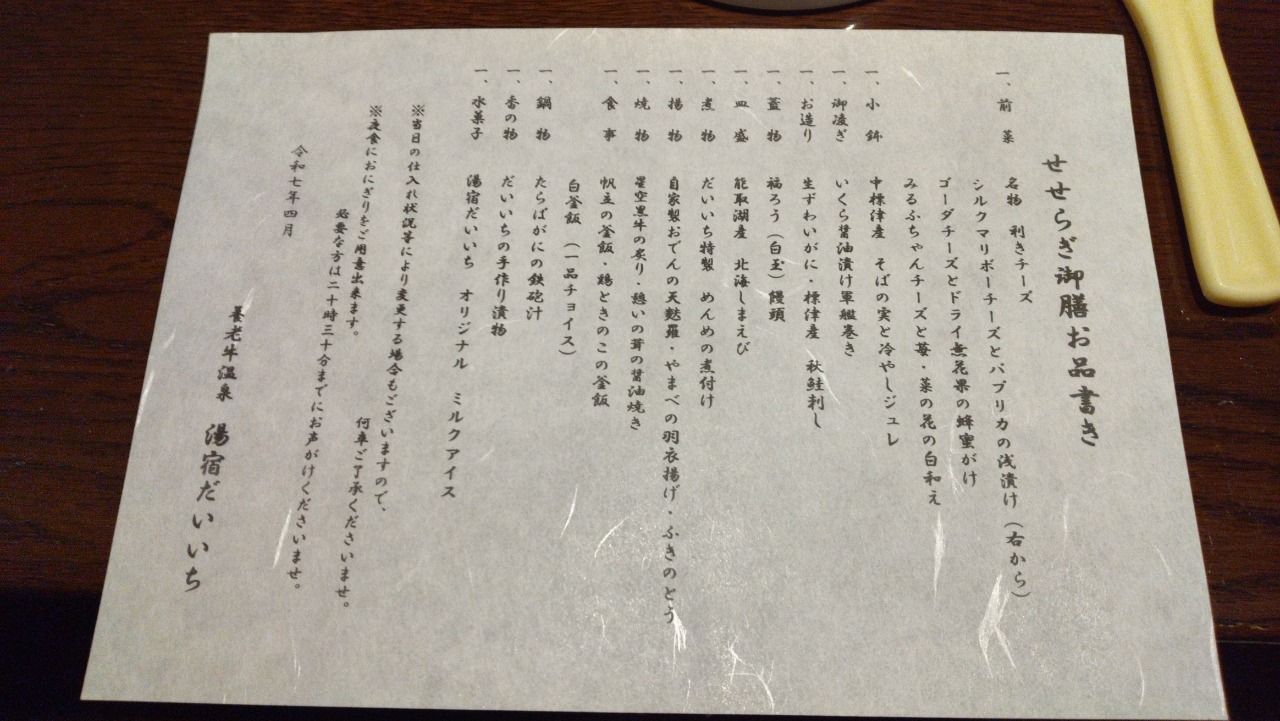 せせらぎ御膳お品書き
一、前菜　名物　利きチーズ
シルクマリボーチーズとパプリカの浅漬け（右から）
ゴーダチーズとドライ無花果の蜂蜜がけ
みるふちゃんチーズと苺・菜の花の白和え
一、小鉢　中標津産　そばの実と冷やしジュレ
一、御凌ぎ　いくら醤油漬け軍艦巻き
一、お造り　生ずわいがに・標津産　秋鮭刺し
一、蓋物　福ろう（白玉）饅頭
一、皿盛　能取湖産　北海しまえび
一、煮物　だいいち特製　めんめの煮付け
一、揚物　自家製おでんの天麩羅・やまべの羽衣揚げ・ふきのとう
一、焼物　星空黒牛の炙り・憩いの茸の醤油焼き
一、食事　帆立の釜飯・鶏ときのこの釜飯
白釜飯　（一品チョイス）
一、鍋物　たらばがにの鉄砲汁
一、香の物　だいいちの手作り漬物
一、水菓子　湯宿だいいち　オリジナル　ミルクアイス
※当日の仕入れ状況等により変更する場合もございますので、
何卒ご了承くださいませ。
※夜食におにぎりをご用意出来ます。
必要な方は二十時三十分までにお声がけくださいませ。
令和七年四月
養老牛温泉　湯宿だいいち